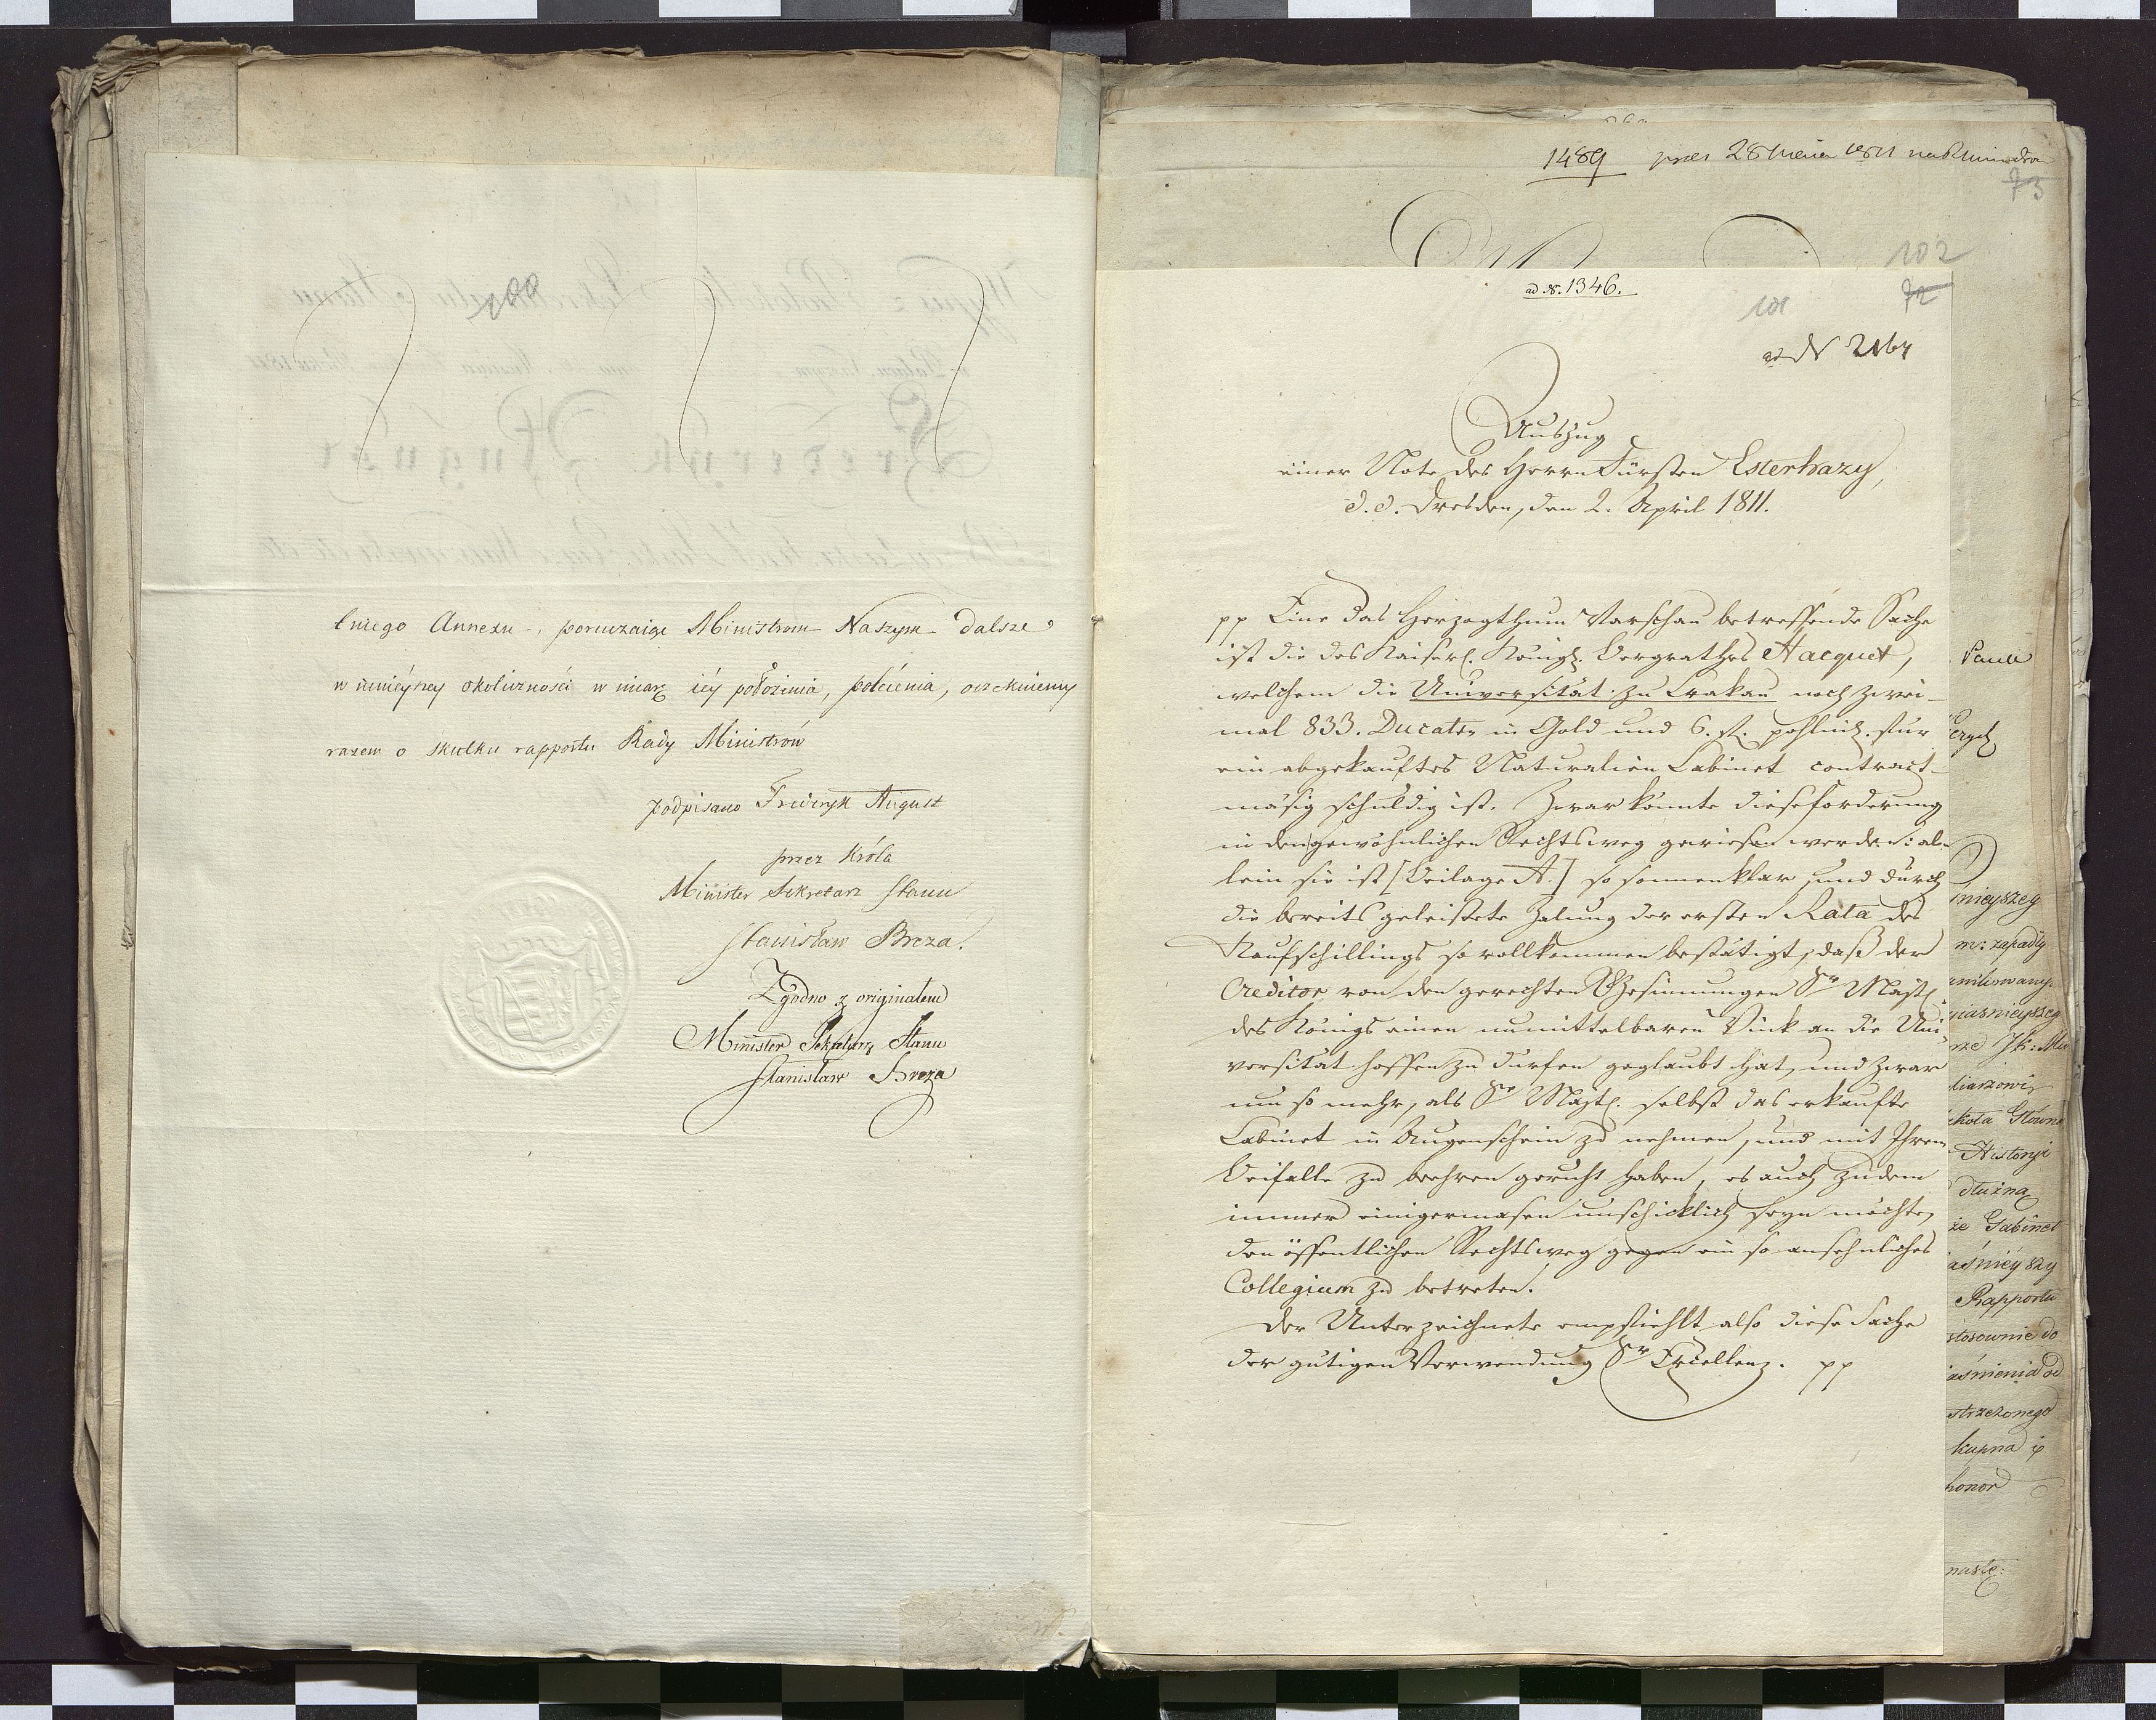 łniego Annexu, poruczaiąc Ministrom Naszym dalsze
w ninieyszey okoliczności w miarę iéy położenia, polecenia, oczekuiemy
razem o skutku rapportu Rady Ministrów
podpisano Frideryk August
przez Króla
Minister Sekretarz Stanu
Stanisław Breza.
Zgodno z originałem
Minister Sekretarz Stanu
Stanisław Breza
1489
73
102
ad N. 1346.
101
72
ad N 2164
Auszug
einer Note des Herrn Fürsten Esterhazy,
d. d. Dresden, den 2. April 1811.
pp Eine das Herzogthum Warschau betreffende Sache
ist die des Kaiserl. Königl. Bergrathes Hacquet,
welchem die Universität zu Crakau noch zwei-
mal 833. Ducaten in Gold und 6. fl. pohlnisch. für
ein abgekauftes Naturalien Cabinet contract-
mäsig schuldig ist. Zwar könnte diese Forderung
in den gewöhnlichen Rechtsweg gewiesen werden: al-
lein sie ist [Beilage A.] so sonnenklar, und durch
die bereits geleistete Zalung der ersten Rata des
Kaufschillings so vollkommen bestätigt, daß der
Creditor von den gerechten Gesinnungen Sr Majst.
des Königs einen unmittelbaren Wink an die Uni-
versität hoffen zu dürfen geglaubt hat, und zwar
um so mehr, als Se Majst. selbst das erkaufte
Cabinet in Augenschein zu nehmen, und mit Ihrem
Beifalle zu beehren geruht haben, es auch zudem
immer einigermasen unschicklich seyn möchte,
den öffentlichen Rechtsweg gegen ein so ansehnliches
Collegium zu betreten.
Der Unterzeichnete empfiehlt also diese Sache
der gütigen Verwendung Sr Excellenz. pp
nieyszey
m: zapadły
iaśnieyszeg
koła Główna
Historyi
dłużna
że Gabinet
aśnieyszy
Rapportu
stosownie do
aśnienia od
strzeżonego
kupna i
honor